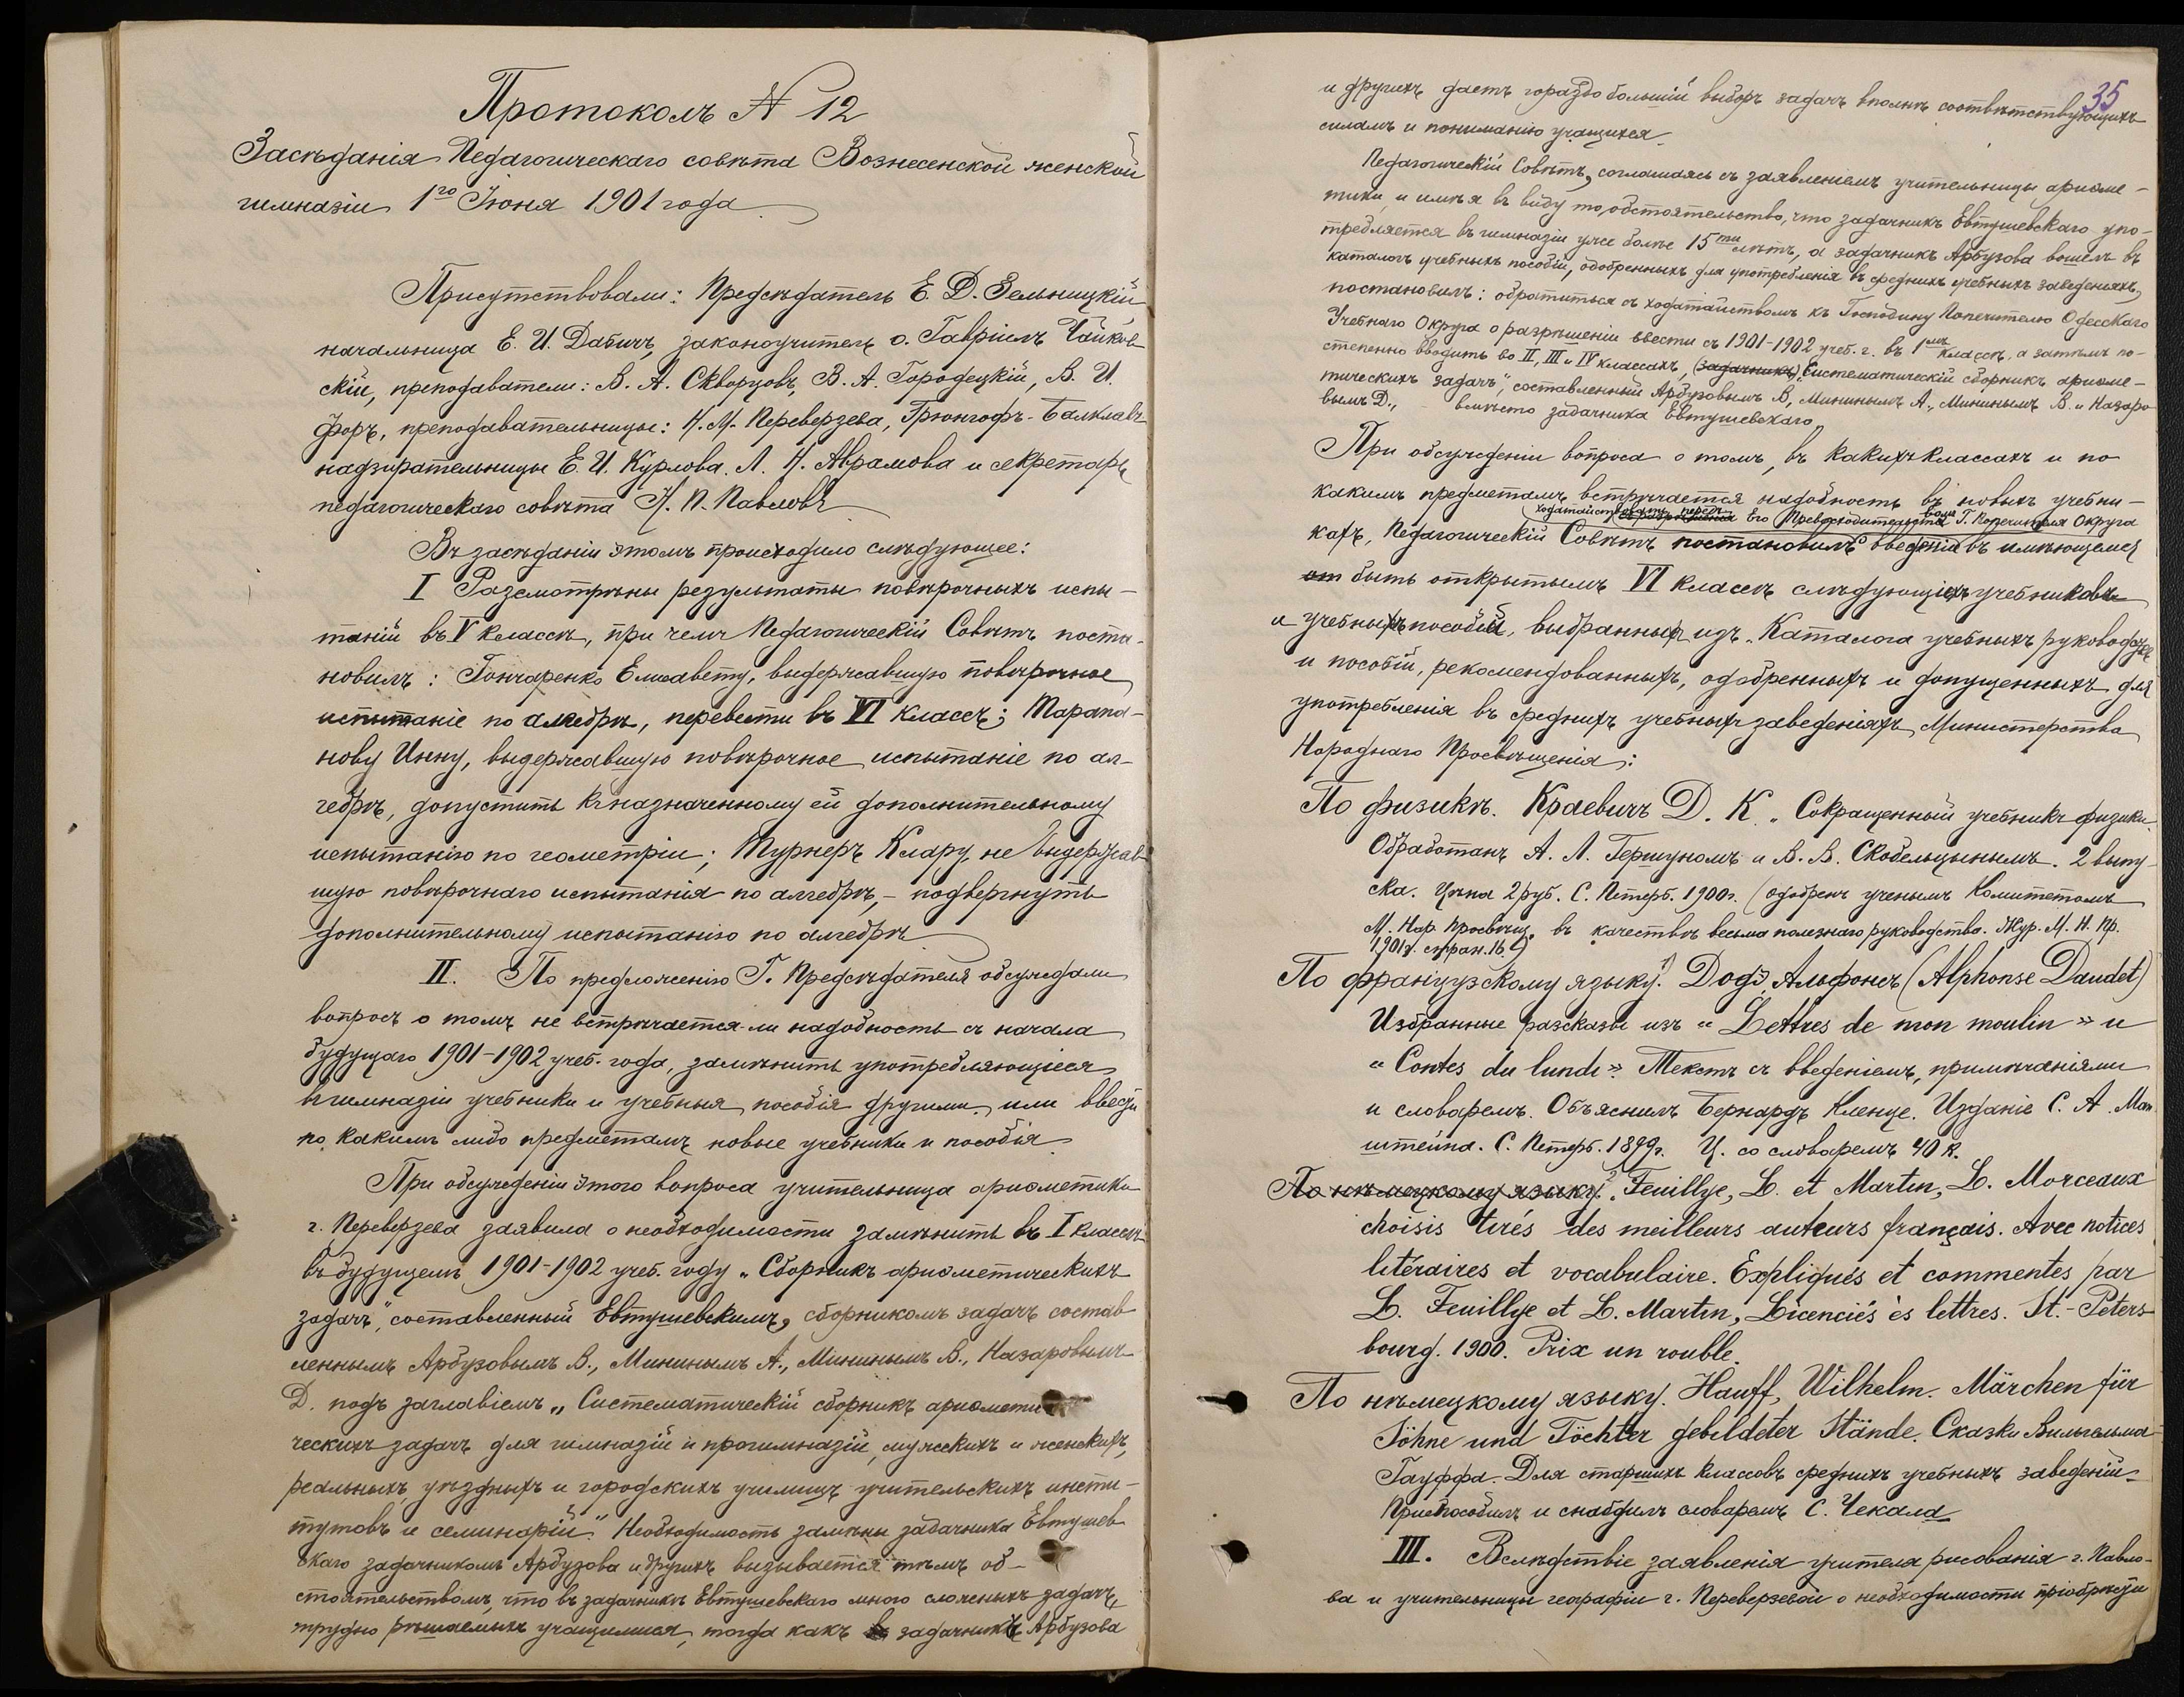 Протоколъ № 12
Засѣданія Педагогическаго совѣта Вознесенской женской
гимназіи 1го Іюня 1901 года
Присутствовали: Предсѣдатель Е. Д. Зельницкій
начальница Е. И. Дабичъ, законоучитель о. Гавріилъ Чайков-
скій, преподаватели: В. А. Скворцовъ, В. А. Городецкій, В. И.
преподавательницы: Н. М. Переверзева, Грюнгофъ-
надзирательницы Е. И. Курлова. Л. Н. Аврамова и секретарь
педагогическаго совѣта Н. П. Павловъ
Въ засѣданіи этомъ происходило слѣдующее:
I Разсмотрѣны результаты повѣрочныхъ испы-
таній въ V классѣ, при чемъ Педагогическій Совѣтъ поста-
новилъ: Гончаренко Елисавету, выдержавшую повѣрочное
испытаніе по алгебрѣ, перевести въ VI классъ; Тарапа-
нову Инну, выдержавшую повѣрочное испытаніе по ал-
гебрѣ, допустить къ назначенному ей дополнительному
испытанію по геометріи; Турнеръ Клару, не выдержав-
шую повѣрочнаго испытанія по алгебрѣ, – подвергнуть
дополнительному испытанію по алгебрѣ
II. По предложенію Г. Предсѣдателя обсуждали
вопросъ о томъ не встрѣчается-ли надобность съ начала
будущаго 1901-1902 учеб. года, замѣнить употребляющіеся
въ гимназіи учебники и учебныя пособія другими, или ввести
по какимъ либо предметамъ новые учебники и пособія.
При обсужденіи этого вопроса учительница ариѳметики
г. Переверзева заявила о необходимости замѣнить въ I классѣ
въ будущемъ 1901-1902 учеб. году „Сборникъ ариѳметическихъ
задачъ", составленный Евтушевскимъ, сборникомъ задачъ состав-
леннымъ Арбузовымъ В., Мининымъ А., Мининымъ В., Назаровымъ
Д. подъ заглавіемъ „Систематическій сборникъ ариѳмети-
ческихъ задачъ для гимназій и прогимназій, мужскихъ и женскихъ,
реальныхъ, уѣздныхъ и городскихъ училищъ учительскихъ инсти-
тутовъ и семинарій." Необходимость замѣны задачника Евтушев-
скаго задачникомъ Арбузова и другихъ вызывается тѣмъ об-
стоятельствомъ, что въ задачникѣ Евтушевскаго много сложныхъ задачъ,
трудно рѣшаемыхъ учащимися, тогда какъ задачникъ Арбузова
35
и другихъ даетъ гораздо большій выборъ задачъ вполнѣ соотвѣтствующихъ
силамъ и пониманію учащихся.
Педагогическій Совѣтъ, соглашаясь съ заявленіемъ учительницы ариѳме-
тики, и имѣя въ виду то обстоятельство, что задачникъ Евтушевскаго упо-
требляется въ гимназіи уже болѣе 15ти лѣтъ, а задачникъ Арбузова вошелъ въ
каталогъ учебныхъ пособій, одобренныхъ для употребленія въ среднихъ учебныхъ заведеніяхъ,
постановилъ: обратиться съ ходатайствомъ къ Господину Попечителю Одесскаго
Учебнаго Округа о разрѣшеніи ввести съ 1901-1902 учеб. г. въ 1мъ классѣ, а затѣмъ по-
степенно вводить во II, III и IV классахъ, (задачникъ) „Систематическій сборникъ ариѳме-
тическихъ задачъ", составленный Арбузовымъ В, Мининымъ А., Мининымъ В. и Назаро-
вымъ Д., вмѣсто задачника Евтушевскаго.
При обсужденіи вопроса о томъ, въ какихъ классахъ и по
какимъ предметамъ встрѣчается надобность въ новыхъ учебни-
ходатайствовать передъ Его Превосходительствомъ Г. Попечителя Округа
кахъ, Педагогическій Совѣтъ постановилъ о введеніи въ имѣющемся
быть открытымъ VI классѣ слѣдующихъ учебниковъ
и учебныхъ пособій, выбранныхъ изъ „Каталога учебныхъ руководствъ
и пособій, рекомендованныхъ, одобренныхъ и допущенныхъ для
употребленія въ среднихъ учебныхъ заведеніяхъ Министерства
Народнаго Просвѣщенія:
По физикѣ. Краевичъ Д. К. „Сокращенный учебникъ физики.
Обработанъ А. Л. Гершуномъ и В. В. Скобельцынымъ. 2 выпу-
ска. Цѣна 2 руб. С. Петерб. 1900г. (одобренъ ученымъ Комитетомъ
М. Нар. Просвѣщ. въ качествѣ весьма полезнаго руководства. Жур. М. Н. Пр.
1901г. стран. 16.)
По французскому языку. 1) Додэ, Альфонсъ (Alphonse Daudet)
Избранные разсказы изъ « Lettres de mon moulin » и
« Contes du lundi ». Текстъ съ введеніемъ, примѣчаніями
и словаремъ. Объяснилъ Бернардъ Кленце. Изданіе С. А. Ман-
штейна. С. Петерб. 1899г. Ц. со словаремъ 40 к.
По нѣмецкому языку. 2) Feuillye, L. et Martin, L. Morceaux
choisis tirés des meilleurs auteurs français. Avec notices
litéraires et vocabulaire. Expliqués et commentes par
L. Feuillye et L. Martin, Licenciés ès lettres. St.-Peters-
bourg. 1900. Prix un rouble.
По нѣмецкому языку. Hauff, Wilhelm. Märchen für
Söhne und Töchter gebildeter Stände. Сказки Вильгельма
Гауффа. Для старшихъ классовъ среднихъ учебныхъ заведеній.
Приспособилъ и снабдилъ словаремъ С. Чекала
III. Вслѣдствіе заявленія учителя рисованія г. Павло-
ва и учительницы географіи г. Переверзевой о необходимости пріобрѣсти